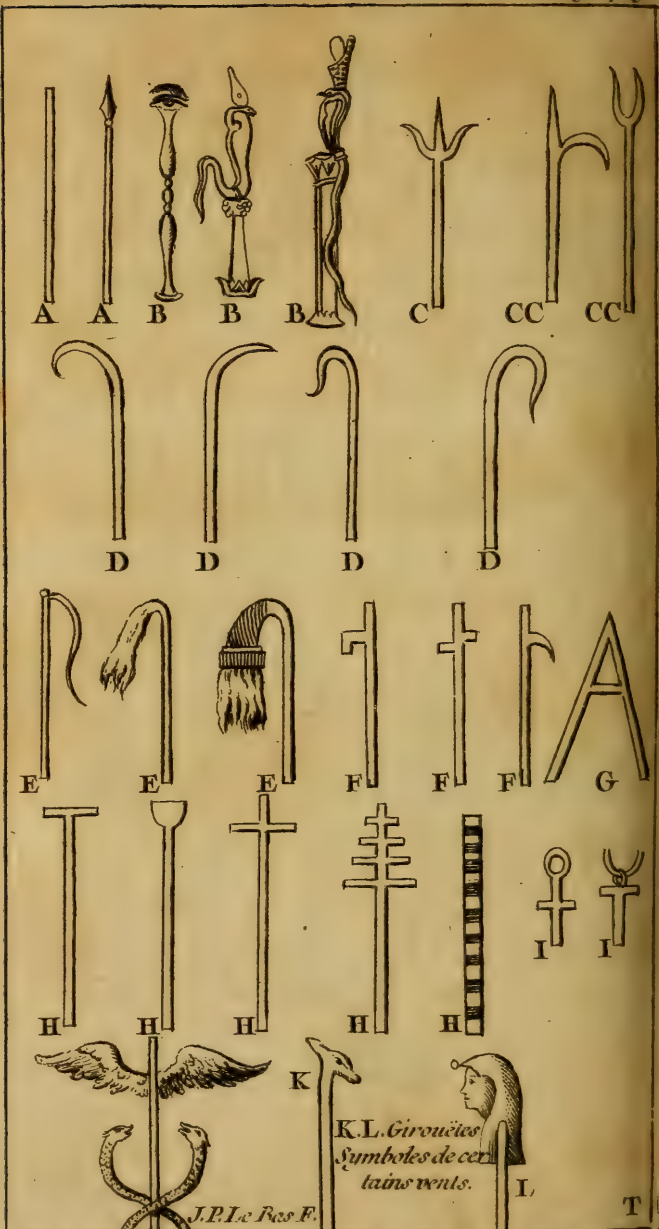 A A B B B C CC CC
D D D D
E E E F F F G
H H H H H I I
K
K.L. Girouëtes
Symboles de cer
tains vents.
L
J.P. Le Bas F.
T